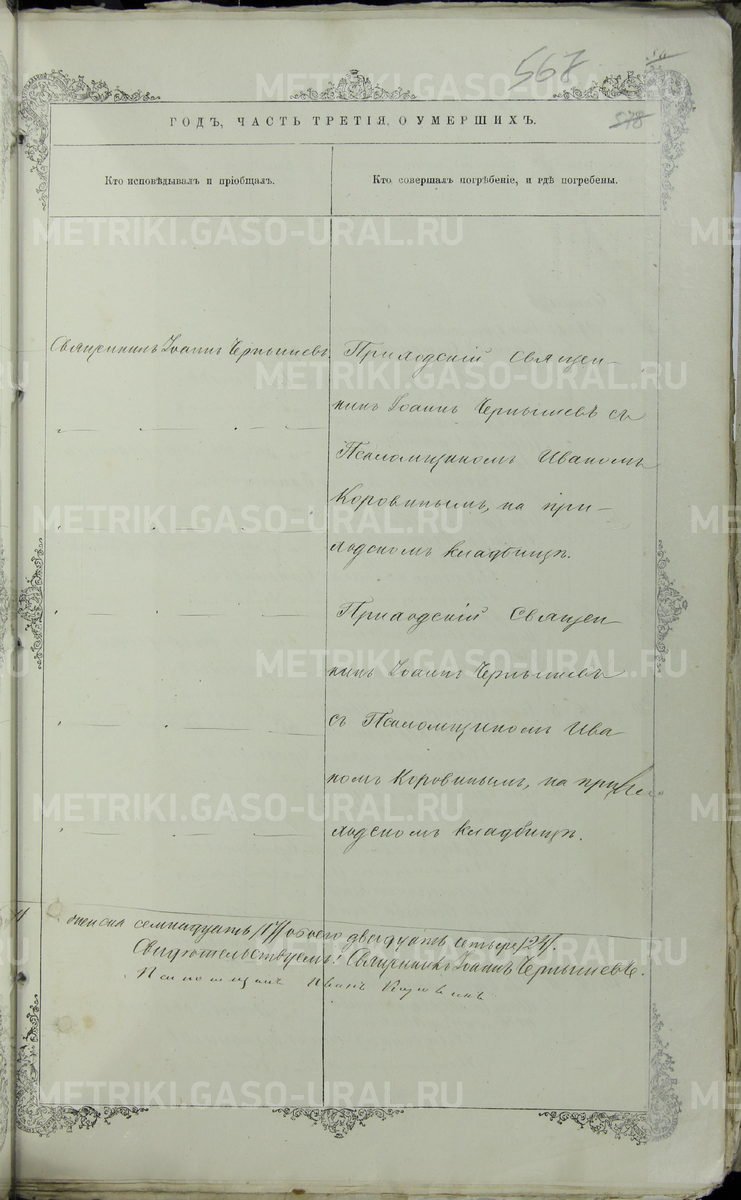 567
578
ГОДЪ, ЧАСТЬ ТРЕТІЯ, О УМЕРШИХЪ.
Кто исповѣдывалъ и пріобщалъ.
Кто совершалъ погребеніе, и гдѣ погребены.
Священникъ Іоаннъ Чернышевъ.
Приходскій Священ-
никъ Іоаннъ Чернышевъ съ
Псаломщикомъ Иваномъ
Коровинымъ, на при-
ходскомъ кладбищѣ.
Приходскій Священ-
никъ Іоаннъ Чернышевъ
съ Псаломщикомъ Ива
номъ Коровинымъ, на при
ходскомъ кладбищѣ.
женска семнадцать /17/ обоего двадцать четыре /24/.
Свидѣтельствуемъ: Священникъ Іоаннъ Чернышевъ.
Псаломщикъ Иванъ Коровинъ
METRIKI.GASO-URAL.RU